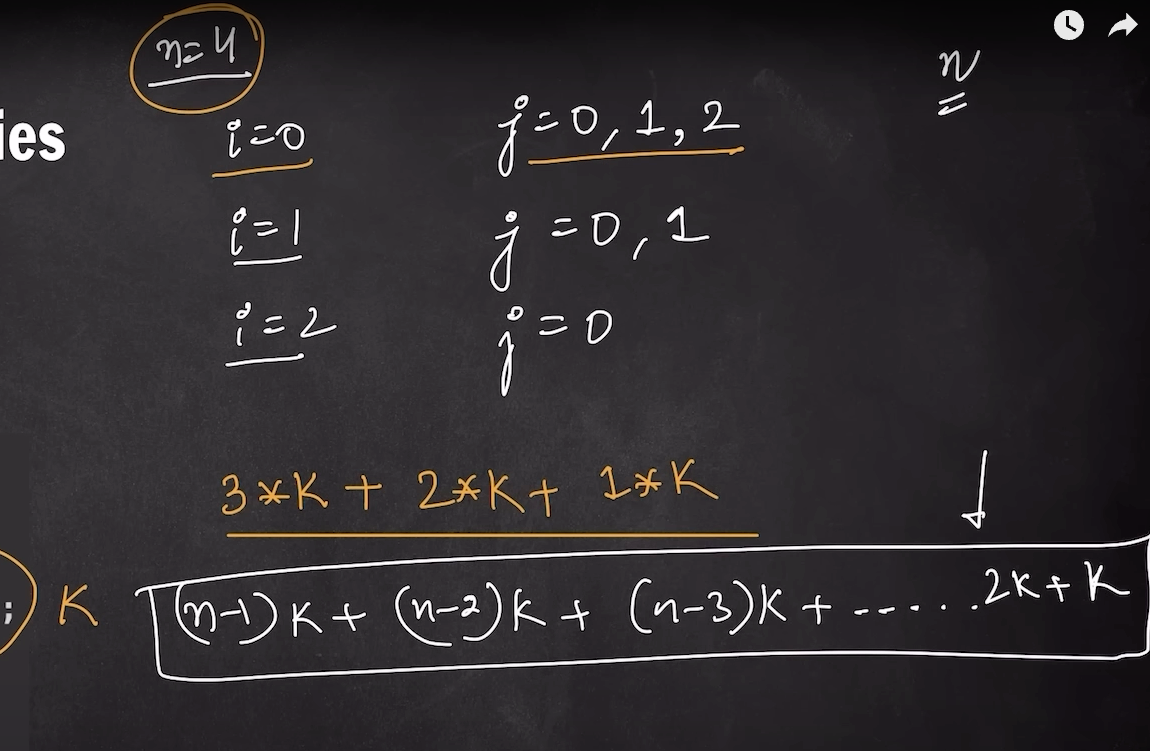 n=4
n
ies
i=0 j=0, 1, 2
i=1 j=0, 1
i=2 j=0
3*K + 2*K + 1*K
; K (n-1)K + (n-2)K + (n-3)K + ------.2K+K